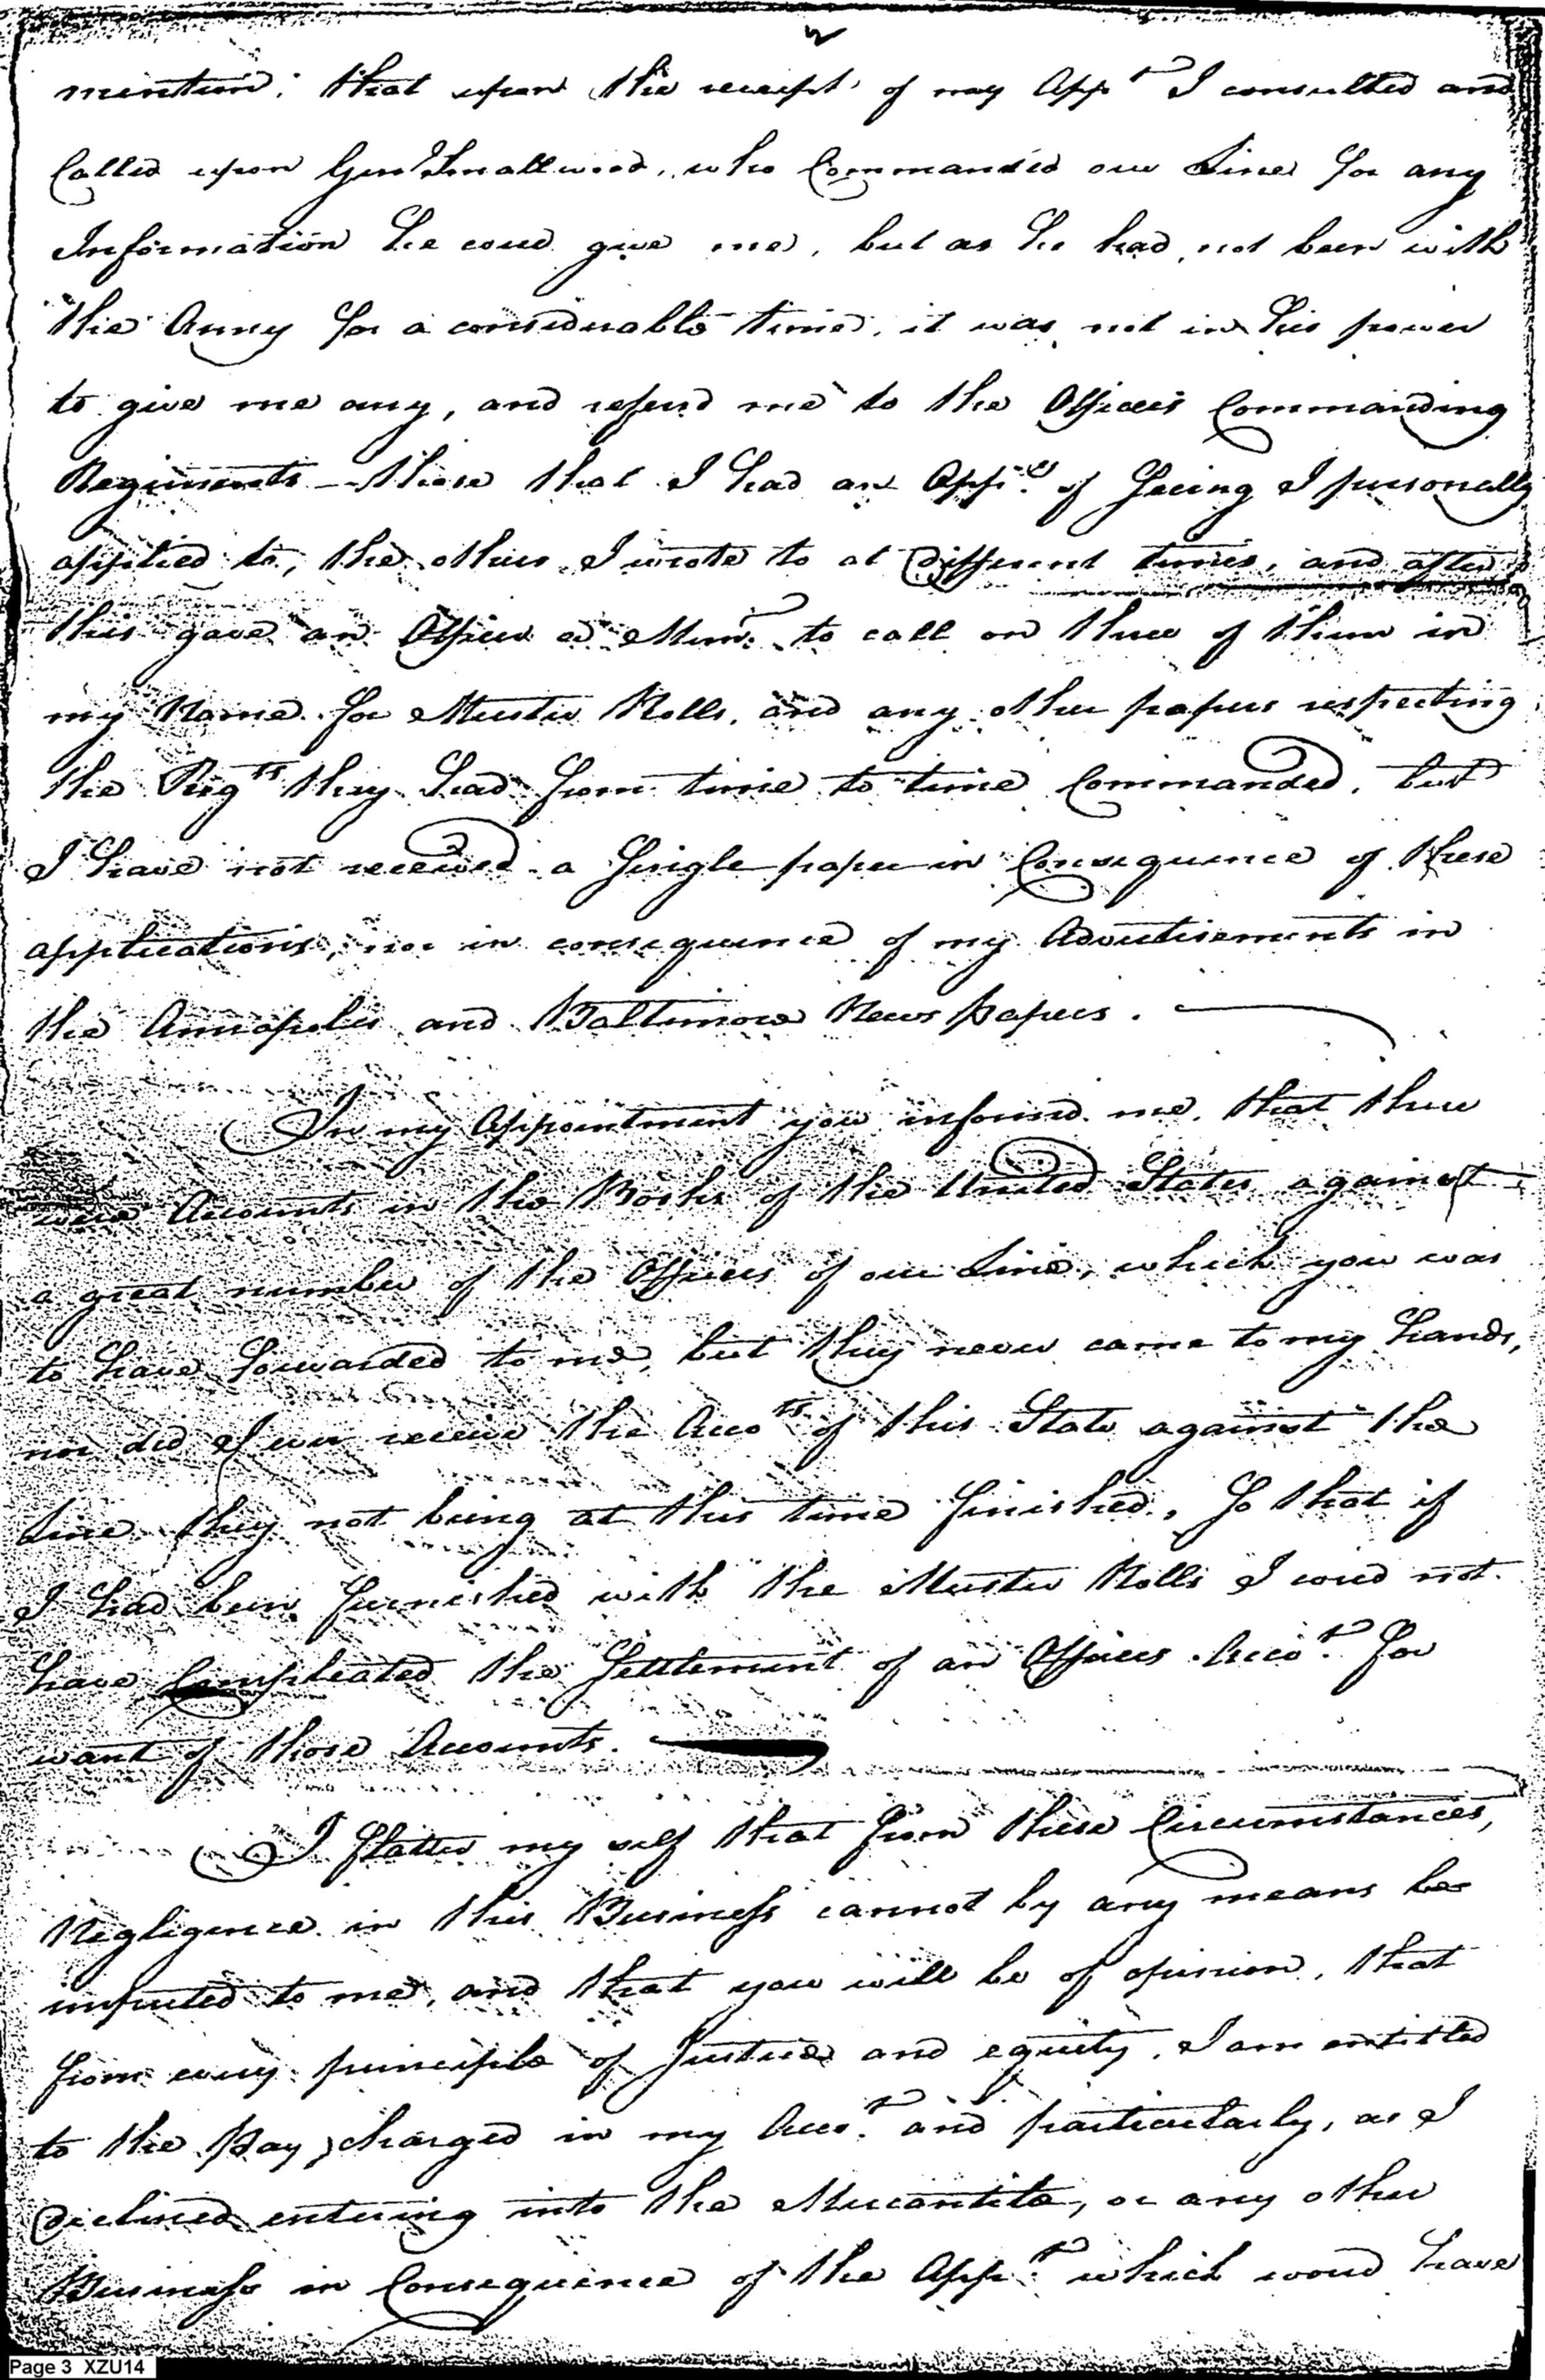 2
mention; that upon the receipt of my Appt I consulted and
Called upon Genl Smallwood, who Commanded our Line for any
Information he coud give me, but as he had not been with
the Army for a considerable time, it was not in his power
to give me any, and referd me to the Officers Commanding
Regiments — those that I had an Oppy. of Seeing I personally
applied to, the others I wrote to at Different times, and after
this gave an Officer a Memo. to call on three of them in
my Name for Muster Rolls, and any other papers respecting
the Regts they had from time to time Commanded, but
I have not received a Single paper in Consequence of these
applications, nor in consequence of my Advertisements in
the Annapolis and Baltimore News papers. —
In my Appointment you informd me, that there
were Accounts in the Books of the United States against
a great number of the Officers of our Line, which you was
to have forwarded to me, but they never came to my hands,
nor did I ever receive the Accots of this State against the
Line they not being at this time finished, So that if
I had been furnished with the Muster Rolls I coud not
have Compleated the Settlement of an Officers Accot. for
want of those Accounts. —
I flatter my self that from these Circumstances,
Negligence in this Business cannot by any means be
imputed to me, and that you will be of opinion, that
from every principle of Justice and equity, I am entitled
to the Pay charged in my Acct. and particularly, as I
Declined entering into the Mercantile, or any other
Business in Consequence of the Appt. which woud have
Page 3 XZU14